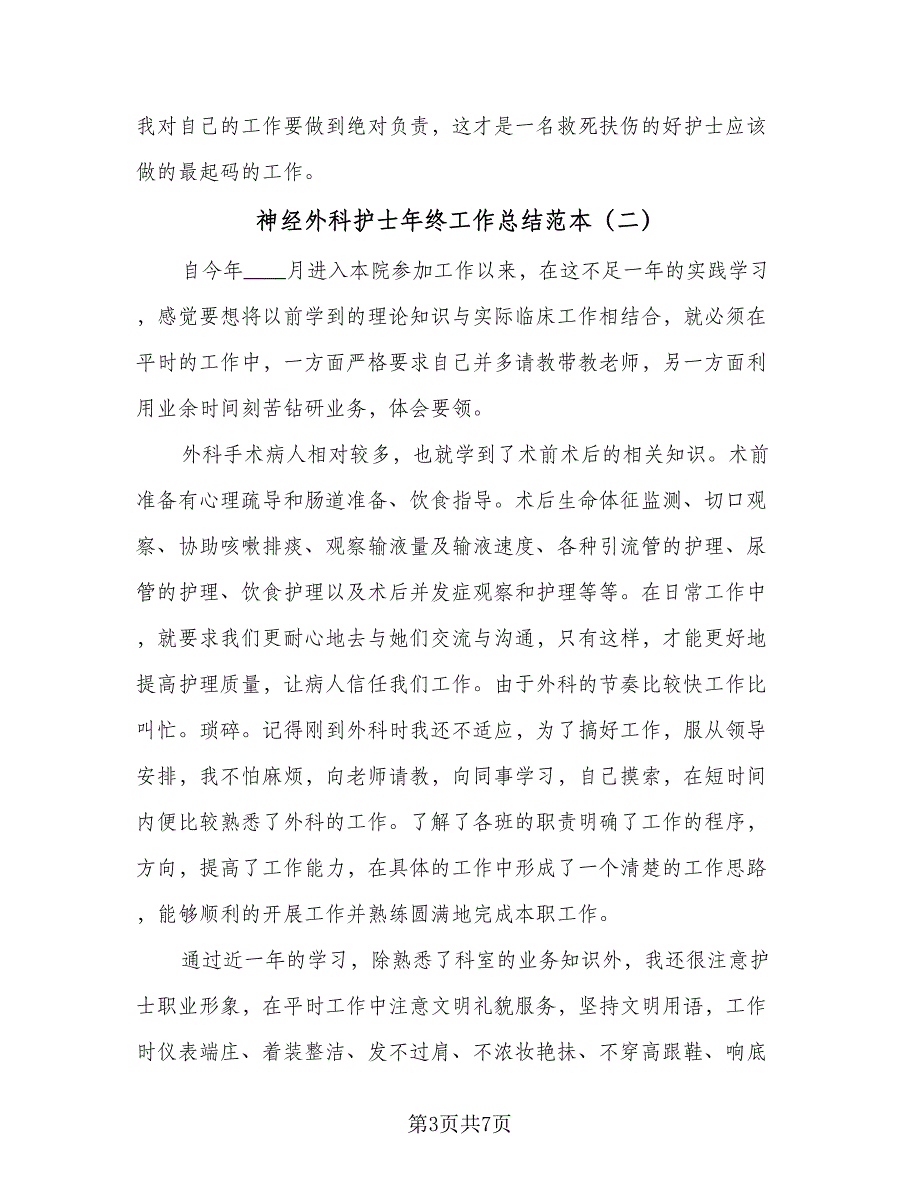 我对自己的工作要做到绝对负责，这才是一名救死扶伤的好护士应该
做的最起码的工作。
神经外科护士年终工作总结范本（二）
自今年____月进入本院参加工作以来，在这不足一年的实践学习
，感觉要想将以前学到的理论知识与实际临床工作相结合，就必须在
平时的工作中，一方面严格要求自己并多请教带教老师，另一方面利
用业余时间刻苦钻研业务，体会要领。
外科手术病人相对较多，也就学到了术前术后的相关知识。术前
准备有心理疏导和肠道准备、饮食指导。术后生命体征监测、切口观
察、协助咳嗽排痰、观察输液量及输液速度、各种引流管的护理、尿
管的护理、饮食护理以及术后并发症观察和护理等等。在日常工作中
，就要求我们更耐心地去与她们交流与沟通，只有这样，才能更好地
提高护理质量，让病人信任我们工作。由于外科的节奏比较快工作比
叫忙。琐碎。记得刚到外科时我还不适应，为了搞好工作，服从领导
安排，我不怕麻烦，向老师请教，向同事学习，自己摸索，在短时间
内便比较熟悉了外科的工作。了解了各班的职责明确了工作的程序，
方向，提高了工作能力，在具体的工作中形成了一个清楚的工作思路
，能够顺利的开展工作并熟练圆满地完成本职工作。
通过近一年的学习，除熟悉了科室的业务知识外，我还很注意护
士职业形象，在平时工作中注意文明礼貌服务，坚持文明用语，工作
时仪表端庄、着装整洁、发不过肩、不浓妆艳抹、不穿高跟鞋、响底
第3页共7页